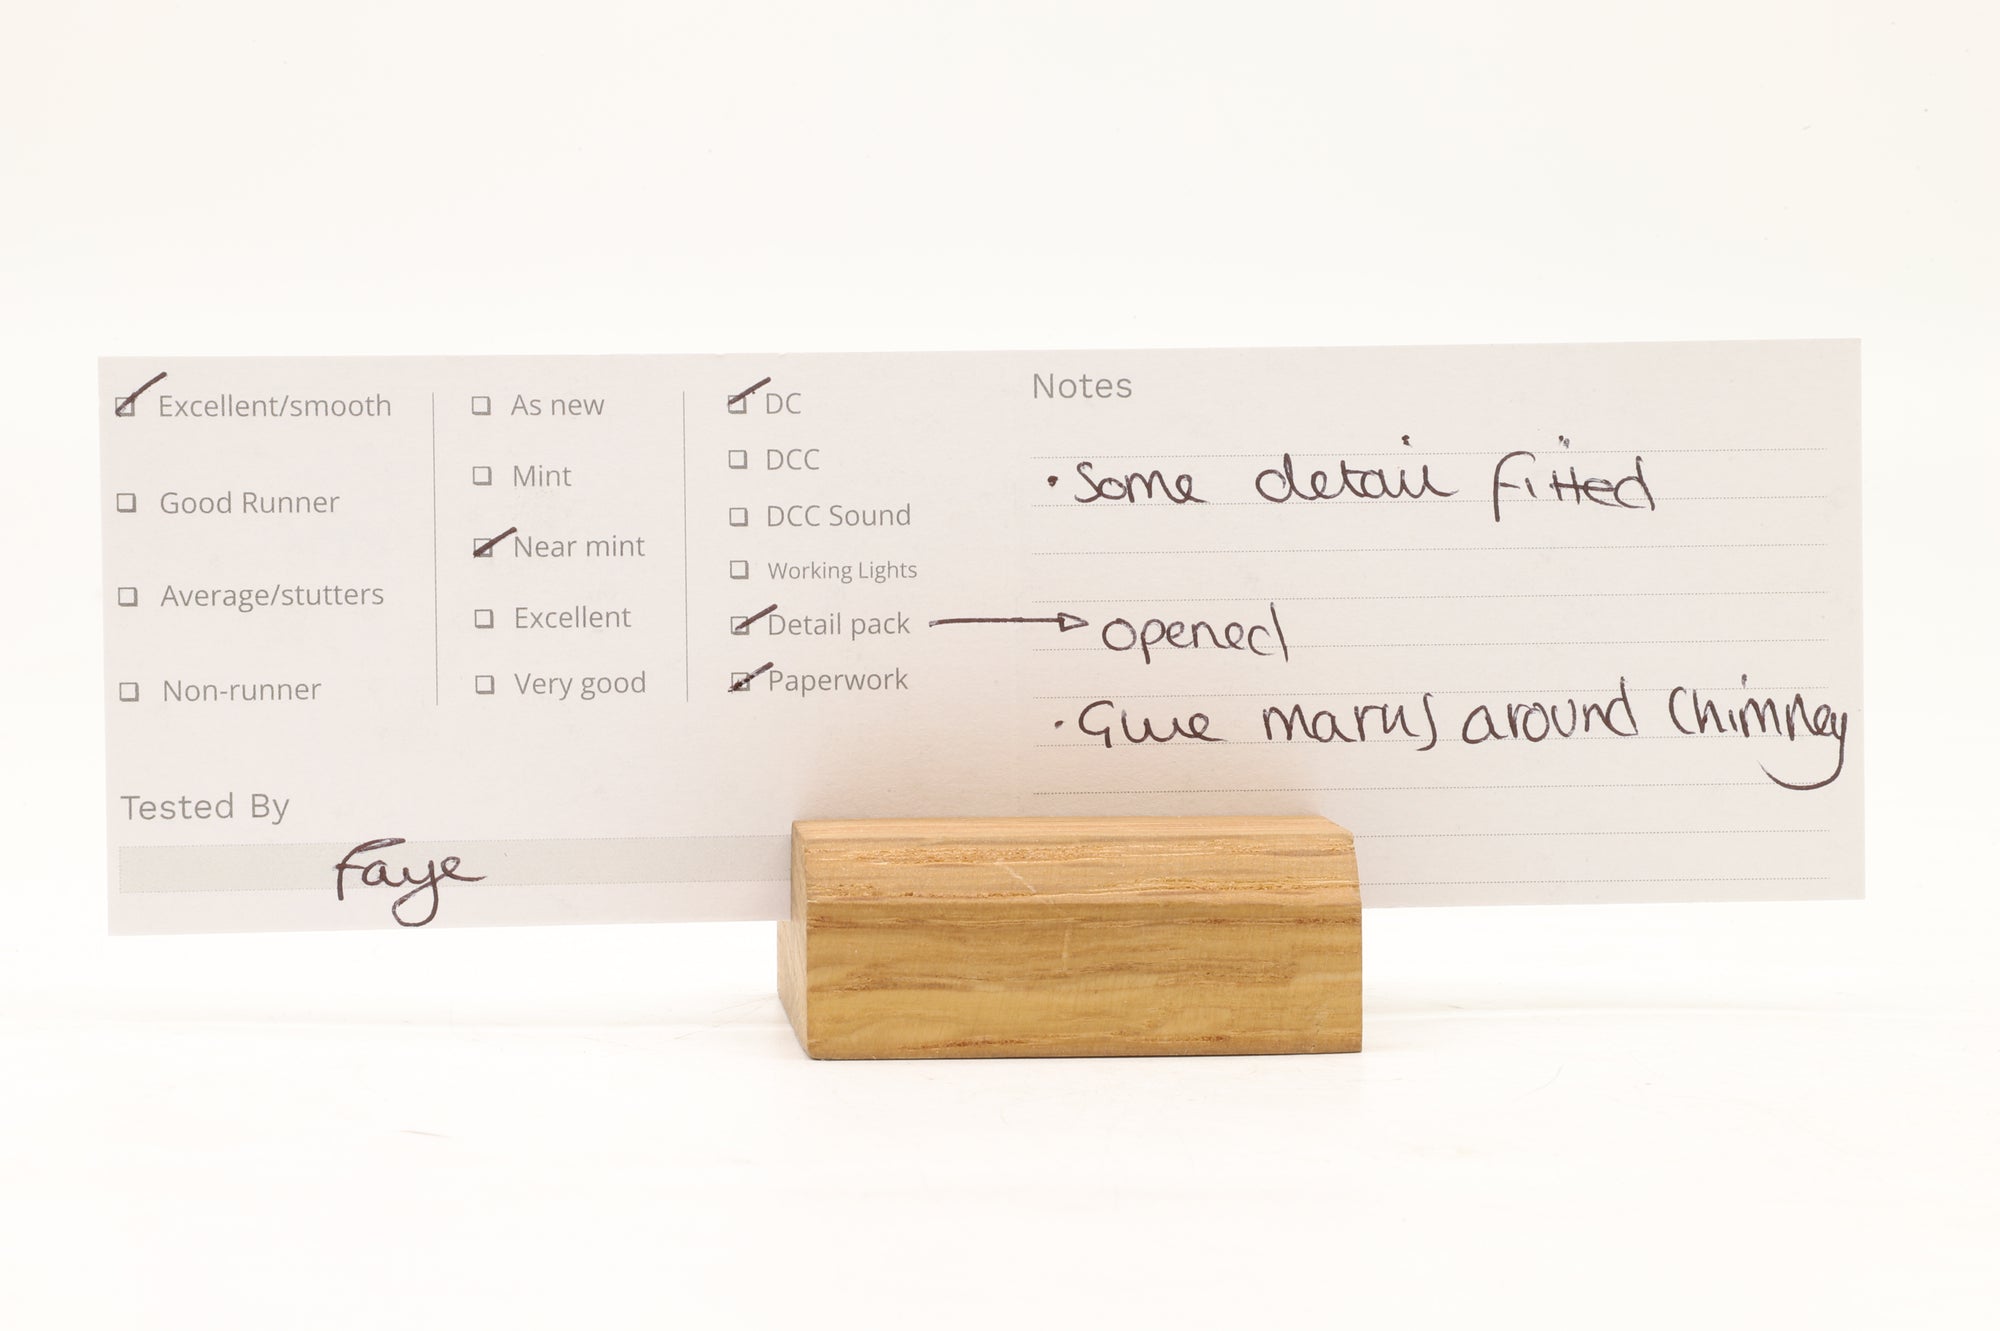 Excellent/smooth
Good Runner
Average/stutters
Non-runner
As new
Mint
Near mint
Excellent
Very good
DC
DCC
DCC Sound
Working Lights
Detail pack
Paperwork
Notes
• Some detail fitted
opened
• Glue marks around Chimney
Tested By
Faye